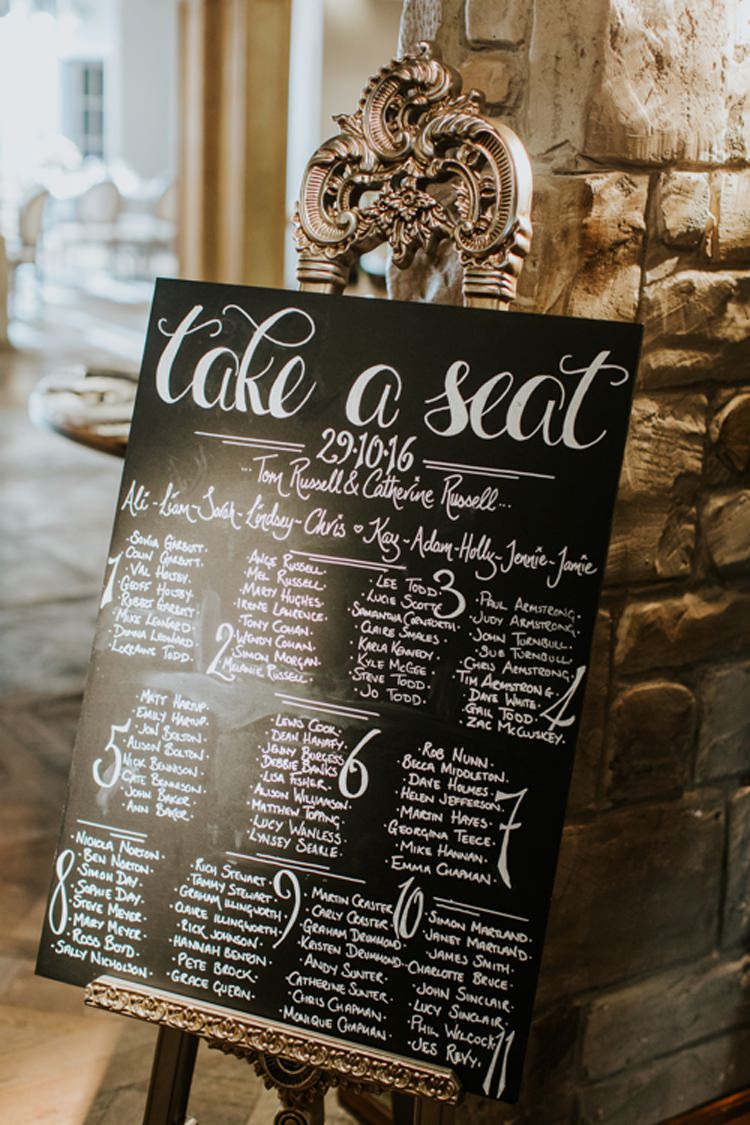 take a seat
29·10·16
...Tom Russell & Catherine Russell...
Ali-Liam-Sarah-Lindsey-Chris ♥ Kay-Adam-Holly-Jennie-Jamie
1
·Sonia Garbutt·
·Colin Garbutt·
·Val Holtby·
·Geoff Holtby·
·Robert Garbutt·
·Mike Leonard·
·Donna Leonard·
·Lorraine Todd·
2
·Ange Russell·
·Mel Russell·
·Marty Hughes·
·Irene Laurence·
·Tony Cohan·
·Wendy Cohan·
·Simon Morgan·
·Melanie Russell·
3
·Lee Todd·
·Lucie Scott·
·Samantha Cornforth·
·Claire Smales·
·Karla Kennedy·
·Kyle McGee·
·Steve Todd·
·Jo Todd·
4
·Paul Armstrong·
·Judy Armstrong·
·John Turnbull·
·Sue Turnbull·
·Chris Armstrong·
·Tim Armstrong·
·Dave White·
·Gail Todd·
·Zac McCluskey·
5
·Matt Hartup·
·Emily Hartup·
·Jon Bolton·
·Alison Bolton·
·Nick Bennison·
·Cate Bennison·
·John Baker·
·Ann Baker·
6
·Lewis Cook·
·Dean Hanafy·
·Jenny Burgess·
·Debbie Banks·
·Lisa Fisher·
·Alison Williamson·
·Matthew Topping·
·Lucy Wanless·
·Lynsey Searle·
7
·Rob Nunn·
·Becca Middleton·
·Dave Holmes·
·Helen Jefferson·
·Martin Hayes·
·Georgina Teece·
·Mike Hannan·
·Emma Chapman·
8
·Nichola Norton·
·Ben Norton·
·Simon Day·
·Sophie Day·
·Steve Meyer·
·Mary Meyer·
·Ross Boyd·
·Sally Nicholson·
9
·Rich Stewart·
·Tammy Stewart·
·Graham Illingworth·
·Claire Illingworth·
·Rick Johnson·
·Hannah Benton·
·Pete Brock·
·Grace Guerin·
10
·Martin Craster·
·Carly Craster·
·Graham Drummond·
·Kristen Drummond·
·Andy Sunter·
·Catherine Sunter·
·Chris Chapman·
·Monique Chapman·
11
·Simon Martland·
·Janet Martland·
·James Smith·
·Charlotte Bruce·
·John Sinclair·
·Lucy Sinclair·
·Phil Wilcock·
·Jes Revy·